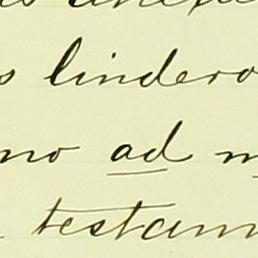 s lindero
no ad m
testam